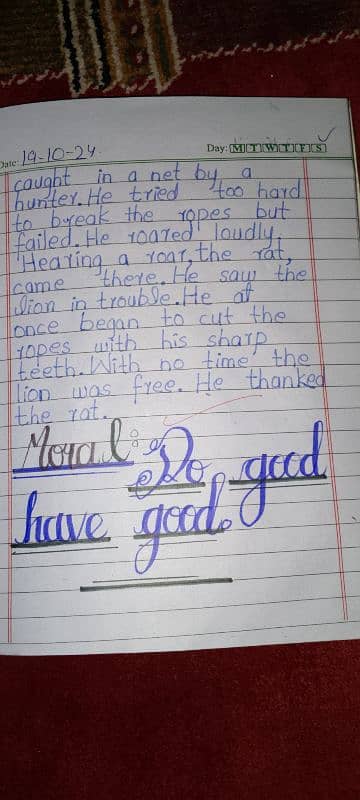 Day: M T W T F S
Date: 19-10-24
caught in a net by a
hunter. He tried too hard
to break the ropes but
failed. He roared loudly.
Hearing a roar, the rat,
came there. He saw the
lion in trouble. He at
once began to cut the
ropes with his sharp
teeth. With no time the
lion was free. He thanked
the rat.
Moral:
Do good
have good.